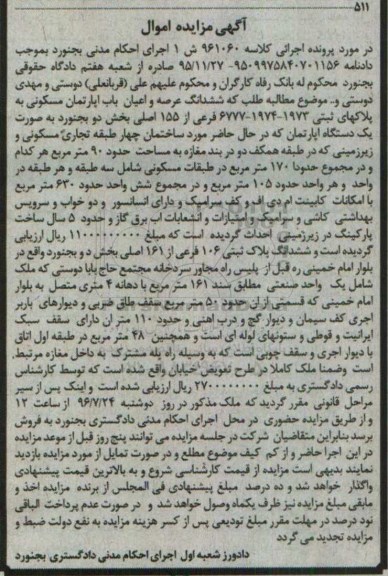 ۵۱۱
آگهی مزایده اموال
در مورد پرونده اجرائی کلاسه ۹۶۱۰۶۰ ش ۱ اجرای احکام مدنی بجنورد بموجب
دادنامه ۹۵۰۹۹۷۵۸۴۰۷۰۱۱۵۶- ۹۵/۱۱/۲۷ صادره از شعبه هفتم دادگاه حقوقی
بجنورد محکوم له بانک رفاه کارگران و محکوم علیهم علی (قربانعلی) دوستی و مهدی
دوستی و.. موضوع مطالبه طلب که ششدانگ عرصه و اعیان باب اپارتمان مسکونی به
پلاکهای ثبتی ۱۹۷۳-۱۹۷۴-۶۷۷۷ فرعی از ۱۵۵ اصلی بخش دو بجنورد به صورت
یک دستگاه آپارتمان که در حال حاضر مورد ساختمان چهار طبقه تجاری مسکونی و
زیرزمینی که در طبقه همکف دو در بند مغازه به مساحت حدود ۹۰ متر مربع هر کدام
و در مجموع حدودا ۱۷۰ متر مربع در طبقات مسکونی شامل سه طبقه و هر طبقه در
واحد و هر واحد حدود ۱۰۵ متر مربع و در مجموع شش واحد حدود ۶۳۰ متر مربع
با امکانات کابینت ام دی اف و کف سرامیک و دارای اسانسور و دو خواب و سرویس
بهداشتی کاشی و سرامیک و امتیازات و انشعابات اب برق گاز و حدود ۵ سال ساخت
پارکینگ در زیرزمینی احداث گردیده است که مبلغ ۱۱۰۰۰۰۰۰۰۰۰ ریال ارزیابی
گردیده است و ششدانگ پلاک ثبتی ۱۰۶ فرعی از ۱۶۱ اصلی بخش دو بجنورد واقع در
بلوار امام خمینی ره قبل از پلیس راه مجاور سردخانه مجتمع حاج بابا دوستی که ملک
شامل یک واحد صنعتی مطابق سند ۱۶۱ متر مربع با دهانه ۴ متری متصل به بلوار
امام خمینی که قسمتی از ان حدود ۵۰ متر مربع سقف طاق ضربی و دیوارهای باربر
اجری کف سیمان و دیوار گچ و درب اهنی و حدود ۱۱۰ متر ان دارای سقف سبک
ایرانیت و قوطی و ستونهای لوله ای است و همچنین ۴۸ متر مربع در طبقه اول اتاق
با دیوار اجری و سقف چوبی است که به وسیله راه پله مشترک به داخل مغازه مرتبط
است وضمنا ملک کاملا در طرح تعویض خیابان واقع شده است که توسط کارشناس
رسمی دادگستری به مبلغ ۲۷۰۰۰۰۰۰۰۰ ریال ارزیابی شده است و اینک پس از سیر
مراحل قانونی مقرر گردید که ملک مذکور در روز دوشنبه ۹۶/۷/۲۴ از ساعت ۱۲
و از طریق مزایده حضوری در محل اجرای احکام مدنی دادگستری بجنورد به فروش
برسد بنابراین متقاضیان شرکت در جلسه مزایده می توانند پنج روز قبل از موعد مزایده
در این اجرا حاضر و از کم کیف موضوع مطلع و در صورت تمایل از مورد مزایده بازدید
نمایند بدیهی است مزایده از قیمت کارشناسی شروع و به بالاترین قیمت پیشنهادی
واگذار خواهد شد و ده درصد مبلغ پیشنهادی فی المجلس از برنده مزایده اخذ و
مابقی مبلغ مزایده نیز ظرف یکماه وصول خواهد شد و در صورت عدم پرداخت الباقی
نود درصد در مهلت مقرر مبلغ تودیعی پس از کسر هزینه مزایده به نفع دولت ضبط و
مزایده تجدید می گردد
دادورز شعبه اول اجرای احکام مدنی دادگستری بجنورد